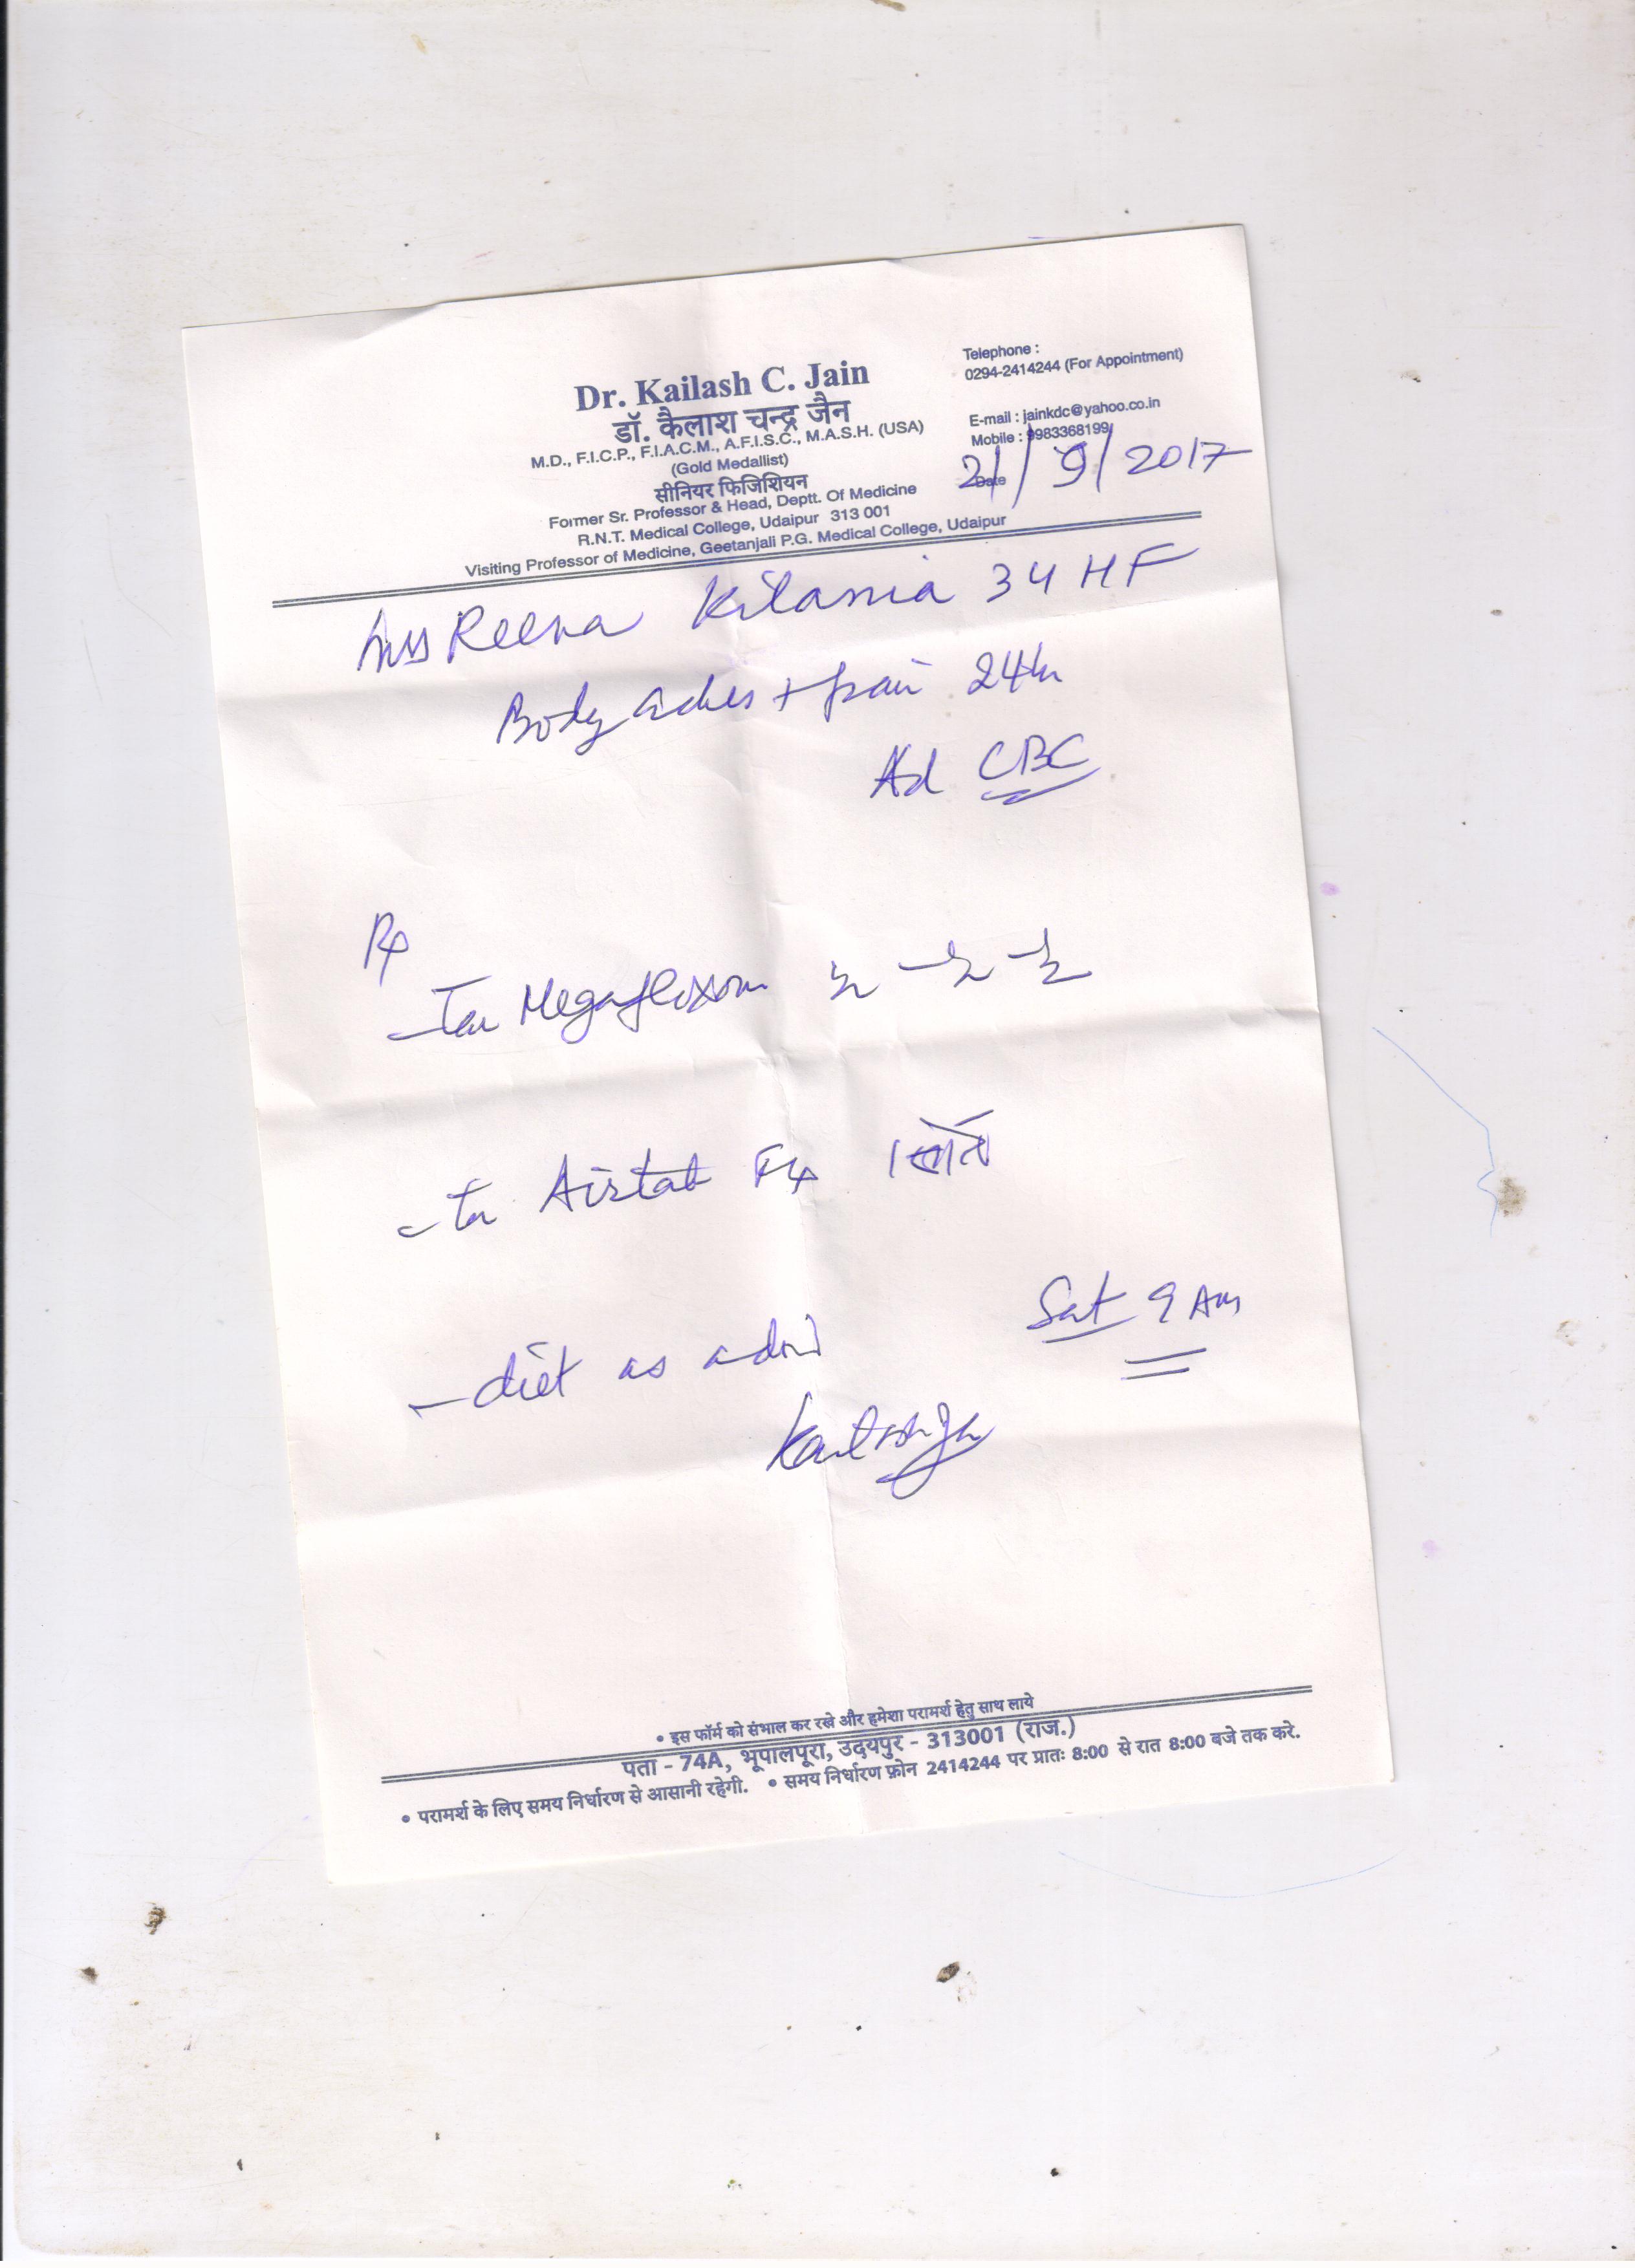 Dr. Kailash C. Jain
डॉ. कैलाश चन्द्र जैन
M.D., F.I.C.P., F.I.A.C.M., A.F.I.S.C., M.A.S.H. (USA)
(Gold Medallist)
सीनियर फिजिशियन
Former Sr. Professor & Head, Deptt. Of Medicine
R.N.T. Medical College, Udaipur 313 001
Visiting Professor of Medicine, Geetanjali P.G. Medical College, Udaipur
Telephone :
0294-2414244 (For Appointment)
E-mail : jainkdc@yahoo.co.in
Mobile : 9983368199
Date 21/9/2017
Reena 34 HF
Body aches + pain 24hr
Ad CBC
Rx
- ½ - ½ - ½
- Airtab 1
- diet as
Sat 9 Am
• इस फॉर्म को संभाल कर रखे और हमेशा परामर्श हेतु साथ लाये
पता - 74A, भूपालपूरा, उदयपुर - 313001 (राज.)
• परामर्श के लिए समय निर्धारण से आसानी रहेगी. • समय निर्धारण फ़ोन 2414244 पर प्रातः 8:00 से रात 8:00 बजे तक करे.